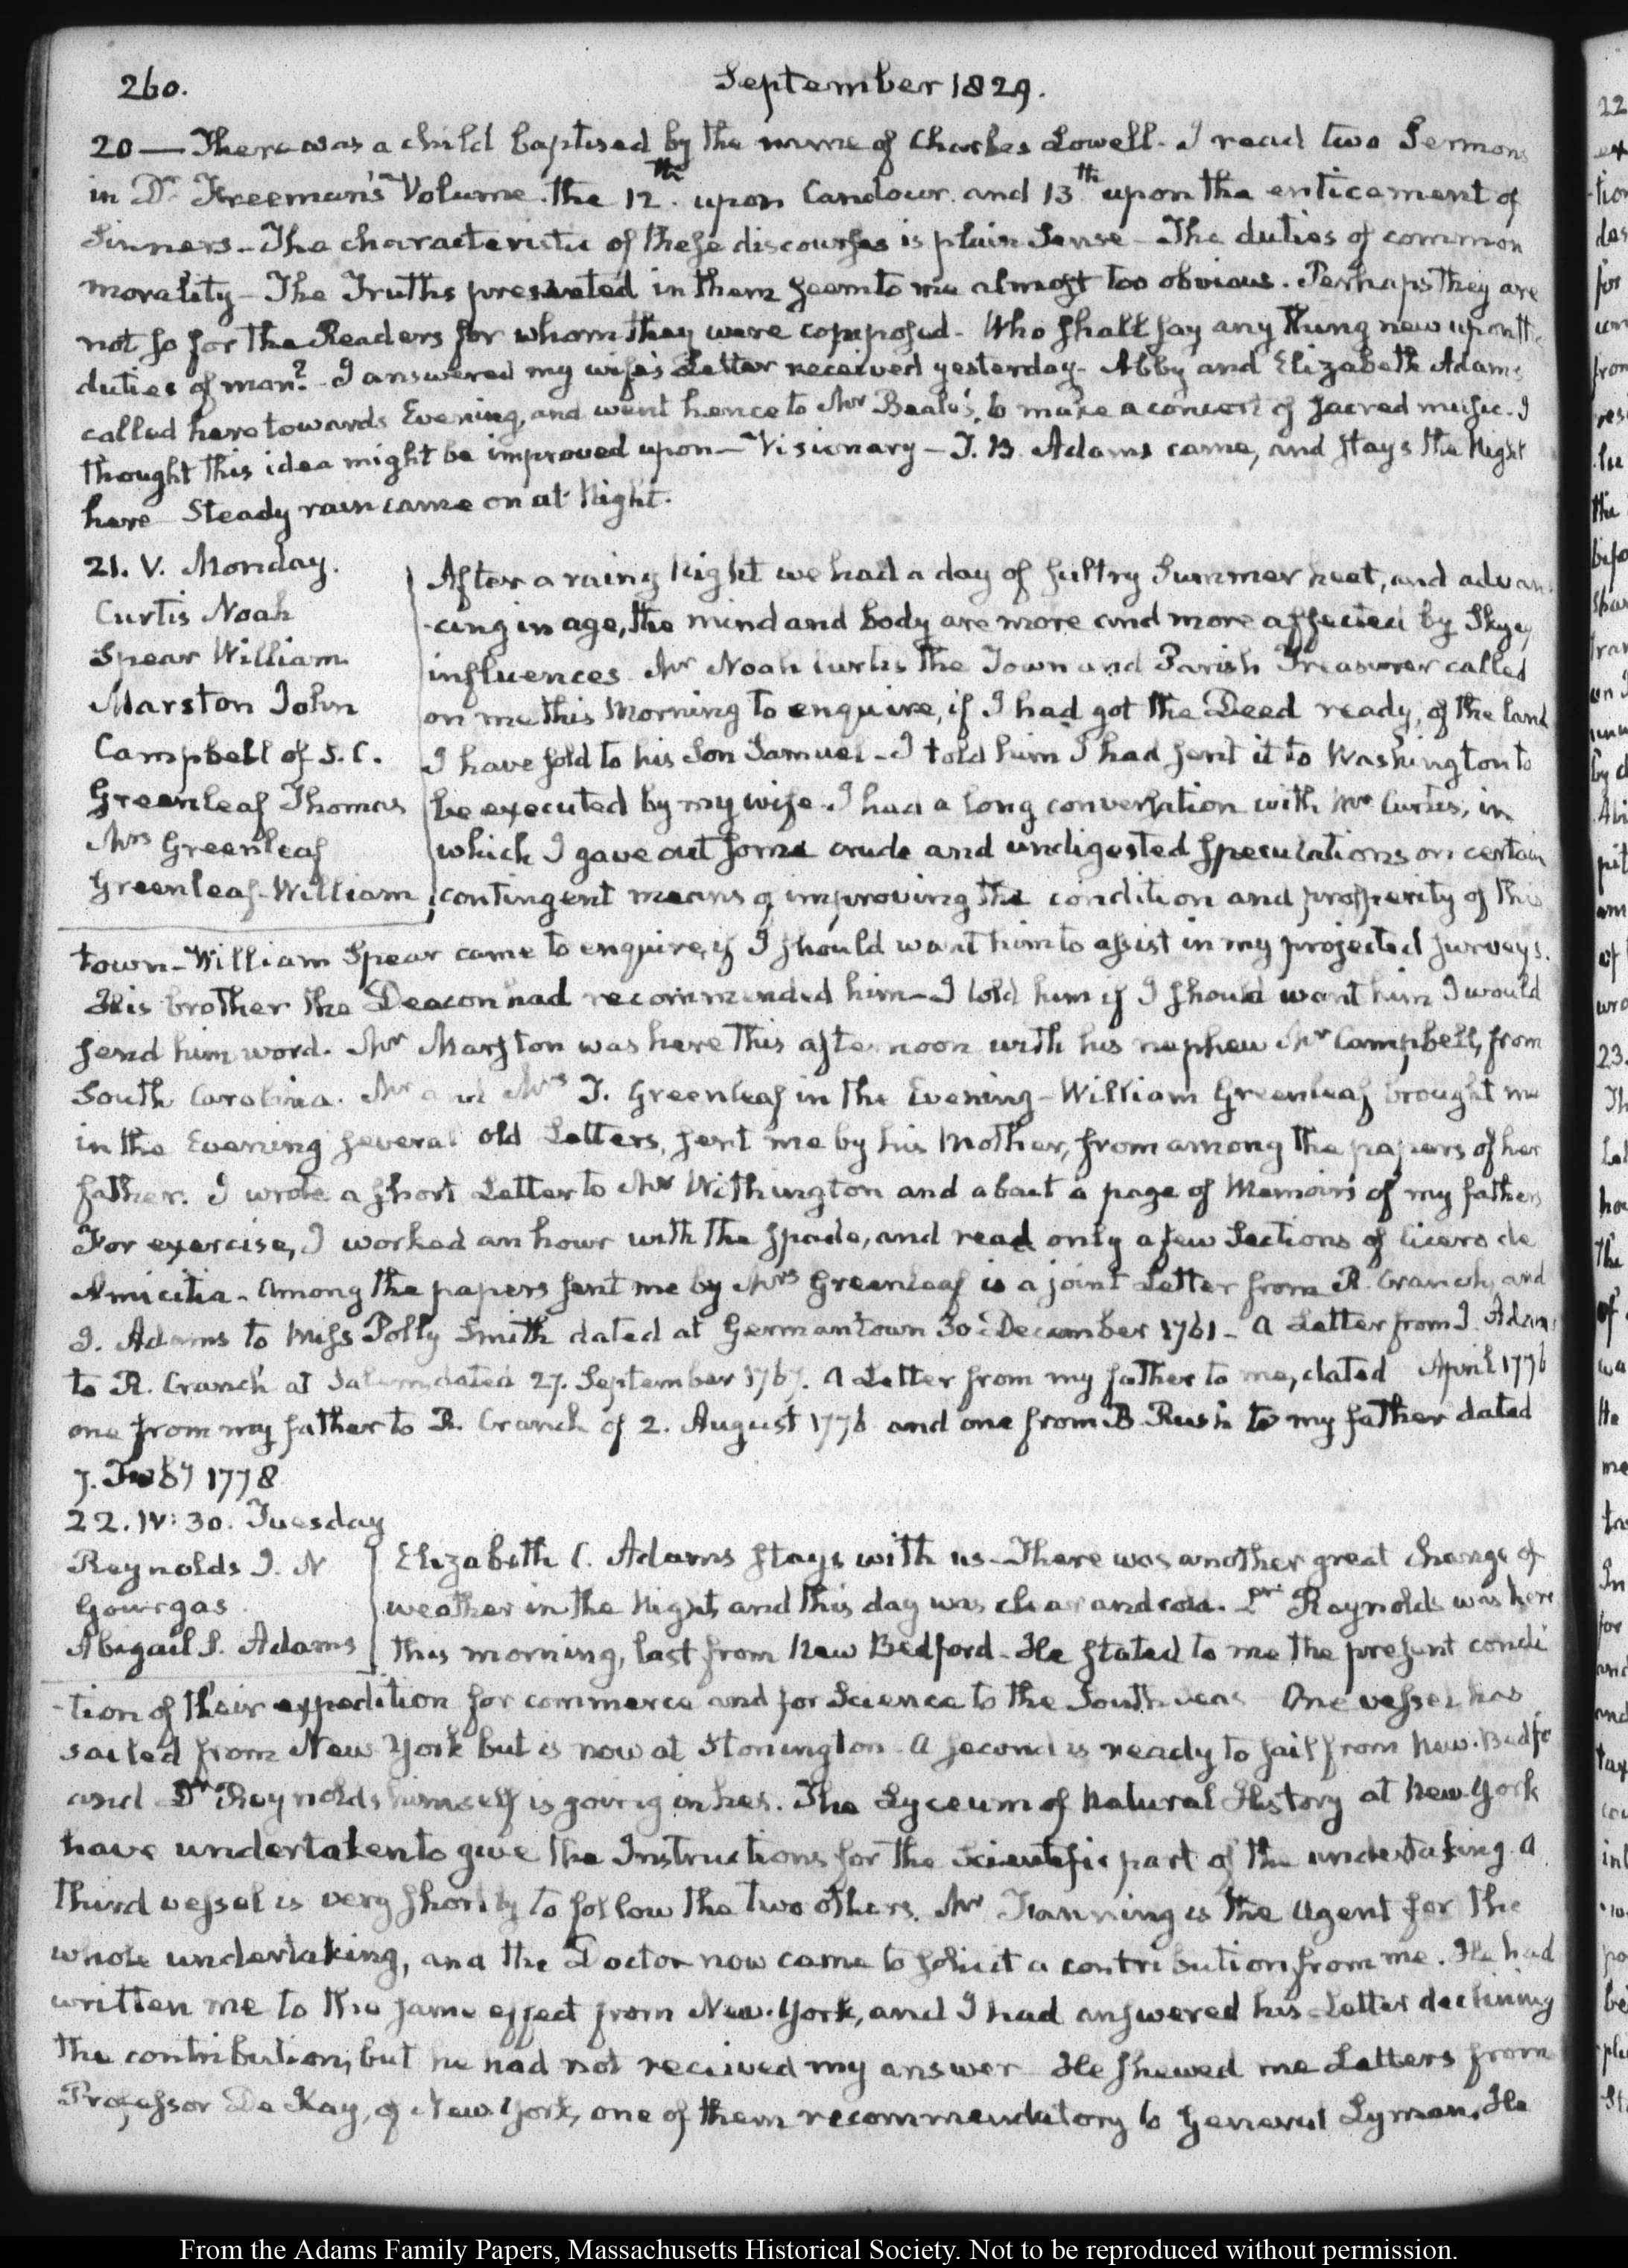 260.
September 1829.
20 — There was a child baptised by the name of Charles Lowell. I read two Sermons
in Dr. Freeman's Volume. the 12th. upon Candour. and 13th upon the enticement of
Sinners - The characteristic of these discourses is plain Sense - The duties of common
morality - The Truths presented in them seem to me almost too obvious. Perhaps they are
not so for the Readers for whom they were composed - Who shall say any thing new upon the
duties of man? - I answered my wife's Letter received yesterday - Abby and Elizabeth Adams
called here towards Evening, and went hence to Mr Beale's, to make a concert of sacred music. I
thought this idea might be improved upon - Visionary - T. B. Adams came, and stays the Night
here Steady rain came on at Night.
21. V. Monday.
Curtis Noah
Spear William
Marston John
Campbell of S. C.
Greenleaf Thomas
Mrs Greenleaf
Greenleaf - William
After a rainy Night we had a day of sultry Summer heat, and advan-
-cing in age, the mind and body are more and more affected by Skyey
influences. Mr Noah Curtis the Town and Parish Treasurer called
on me this Morning to enquire, if I had got the Deed ready, of the land
I have sold to his Son Samuel - I told him I had sent it to Washington to
be executed by my wife. I had a long conversation with Mr Curtis, in
which I gave out some crude and undigested speculations on certain
contingent means of improving the condition and prosperity of this
town - William Spear came to enquire, if I should want him to assist in my projected surveys.
His brother the Deacon had recommended him - I told him if I should want him I would
send him word. Mr Marston was here this afternoon with his nephew Mr Campbell, from
South Carolina. Mr and Mrs T. Greenleaf in the Evening - William Greenleaf brought me
in the Evening several old Letters, sent me by his Mother, from among the papers of her
father. I wrote a short Letter to Mr Withington and about a page of Memoirs of my father
For exercise, I worked an hour with the spade, and read only a few Sections of Cicero de
Amicitia - Among the papers sent me by Mrs Greenleaf is a joint Letter from R. Cranch, and
J. Adams to Miss Polly Smith dated at Germantown 30 December 1761 - A Letter from J. Adams
to R. Cranch at Salem, dated 27. September 1767. A Letter from my father to me, dated April 1776
one from my father to R. Cranch of 2. August 1776 and one from B. Rush to my father dated
7. July 1778
22. IV: 30. Tuesday
Reynolds J. N
Gourgas
Abigail S. Adams
Elizabeth C. Adams stays with us - There was another great change of
weather in the Night, and this day was clear and cold. Dr. Reynolds was here
this morning, last from New Bedford - He stated to me the present condi
-tion of their expedition for commerce and for Science to the South seas One vessel has
sailed from New York but is now at Stonington - A second is ready to sail from New-Bedfo
and Dr Reynolds himself is going in her. The Lyceum of Natural History at New York
have undertaken to give the Instructions for the scientific part of the undertaking. A
third vessel is very shortly to follow the two others. Mr Fanning is the Agent for the
whole undertaking, and the Doctor now came to solicit a contribution from me. He had
written me to the same effect from New-York, and I had answered his Letter declining
the contribution, but he had not received my answer He shewed me Letters from
Professor De Kay, of New York, one of them recommendatory to General Lyman. He
From the Adams Family Papers, Massachusetts Historical Society. Not to be reproduced without permission.